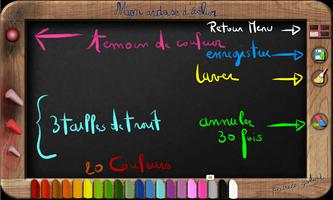 Retour Menu
temoin de couleur
enregistrer
laver
3 tailles de trait
annuler
30 fois
20 Couleurs